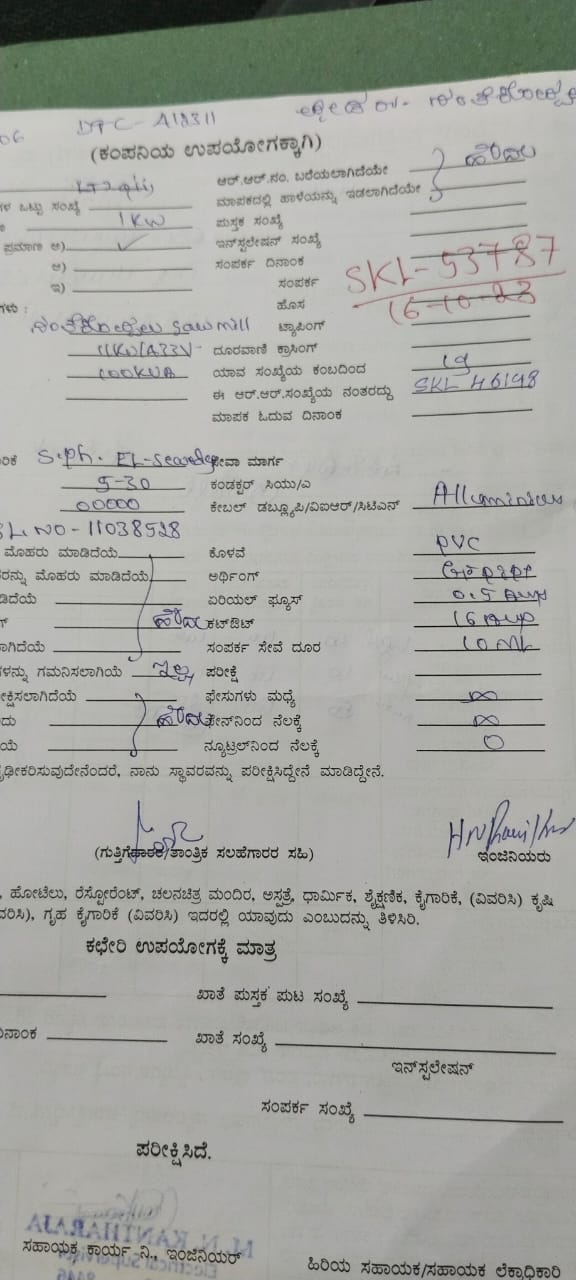 06 DTC-A18311
(ಕಂಪನಿಯ ಉಪಯೋಗಕ್ಕಾಗಿ)
ಆರ್.ಆರ್.ನಂ. ಬರೆಯಲಾಗಿದೆಯೇ ಹೌದು
ಳ ಒಟ್ಟು ಸಂಖ್ಯೆ ಮಾಪಕದಲ್ಲಿ ಹಾಳೆಯನ್ನು ಇಡಲಾಗಿದೆಯೇ
1KW ಪುಸ್ತಕ ಸಂಖ್ಯೆ
ಪ್ರಮಾಣ ಅ) ✓ ಇನ್‌ಸ್ಟಲೇಷನ್ ಸಂಖ್ಯೆ
ಆ) ಸಂಪರ್ಕ ದಿನಾಂಕ
ಇ) ಸಂಪರ್ಕ SKL-53787
ಗಳು : ಹೊಸ 16-10-23
saw mill ಟ್ಯಾಪಿಂಗ್
11KV/433V- ದೂರವಾಣಿ ಕ್ರಾಸಿಂಗ್
100KVA ಯಾವ ಸಂಖ್ಯೆಯ ಕಂಬದಿಂದ 19
ಈ ಆರ್.ಆರ್.ಸಂಖ್ಯೆಯ ನಂತರದ್ದು SKL 46198
ಮಾಪಕ ಓದುವ ದಿನಾಂಕ
ರಿಕೆ S.ph. ಸೇವಾ ಮಾರ್ಗ
5-30 ಕಂಡಕ್ಟರ್ ಸಿಯು/ಎ
00000 ಕೇಬಲ್ ಡಬ್ಲ್ಯೂಪಿ/ವಿಐಆರ್/ಸಿಟಿಎಸ್
SL.NO-11038528
ಮೊಹರು ಮಾಡಿದೆಯೆ ಕೊಳವೆ PVC
ರನ್ನು ಮೊಹರು ಮಾಡಿದೆಯೆ ಅರ್ಥಿಂಗ್
ಡಿದೆಯೆ ಏರಿಯಲ್ ಫ್ಯೂಸ್ 0.5 Amp
ಹೌದು ಕಟ್‌ಔಟ್ 16 Amp
ಲಾಗಿದೆಯೆ ಸಂಪರ್ಕ ಸೇವೆ ದೂರ
ಗಳನ್ನು ಗಮನಿಸಲಾಗಿಯೆ ಇಲ್ಲ ಪರೀಕ್ಷೆ
ೀಕ್ಷಿಸಲಾಗಿದೆಯೆ ಫೇಸುಗಳು ಮಧ್ಯೆ ∞
ದು ಹೌದು ಫೇಸ್‌ನಿಂದ ನೆಲಕ್ಕೆ ∞
ಯೆ ನ್ಯೂಟ್ರಲ್‌ನಿಂದ ನೆಲಕ್ಕೆ 0
ಢೀಕರಿಸುವುದೇನೆಂದರೆ, ನಾನು ಸ್ಥಾವರವನ್ನು ಪರೀಕ್ಷಿಸಿದ್ದೇನೆ ಮಾಡಿದ್ದೇನೆ.
(ಗುತ್ತಿಗೆದಾರಿಕೆ/ತಾಂತ್ರಿಕ ಸಲಹೆಗಾರರ ಸಹಿ) ಇಂಜಿನಿಯರು
, ಹೋಟೆಲು, ರೆಸ್ಟೋರೆಂಟ್, ಚಲನಚಿತ್ರ ಮಂದಿರ, ಅಸ್ಪತ್ರೆ, ಧಾರ್ಮಿಕ, ಶೈಕ್ಷಣಿಕ, ಕೈಗಾರಿಕೆ, (ವಿವರಿಸಿ) ಕೃಷಿ
ವರಿಸಿ), ಗೃಹ ಕೈಗಾರಿಕೆ (ವಿವರಿಸಿ) ಇದರಲ್ಲಿ ಯಾವುದು ಎಂಬುದನ್ನು ತಿಳಿಸಿರಿ.
ಕಛೇರಿ ಉಪಯೋಗಕ್ಕೆ ಮಾತ್ರ
ಖಾತೆ ಪುಸ್ತಕ ಪುಟ ಸಂಖ್ಯೆ
ನಾಂಕ ಖಾತೆ ಸಂಖ್ಯೆ
ಇನ್‌ಸ್ಟಲೇಷನ್
ಸಂಪರ್ಕ ಸಂಖ್ಯೆ
ಪರೀಕ್ಷಿಸಿದೆ.
M.N. KANTHARAJA
ಸಹಾಯಕ ಕಾರ್ಯ ನಿ., ಇಂಜಿನಿಯರ್ ಹಿರಿಯ ಸಹಾಯಕ/ಸಹಾಯಕ ಲೆಕ್ಕಾಧಿಕಾರಿ
Electrical Supervisor